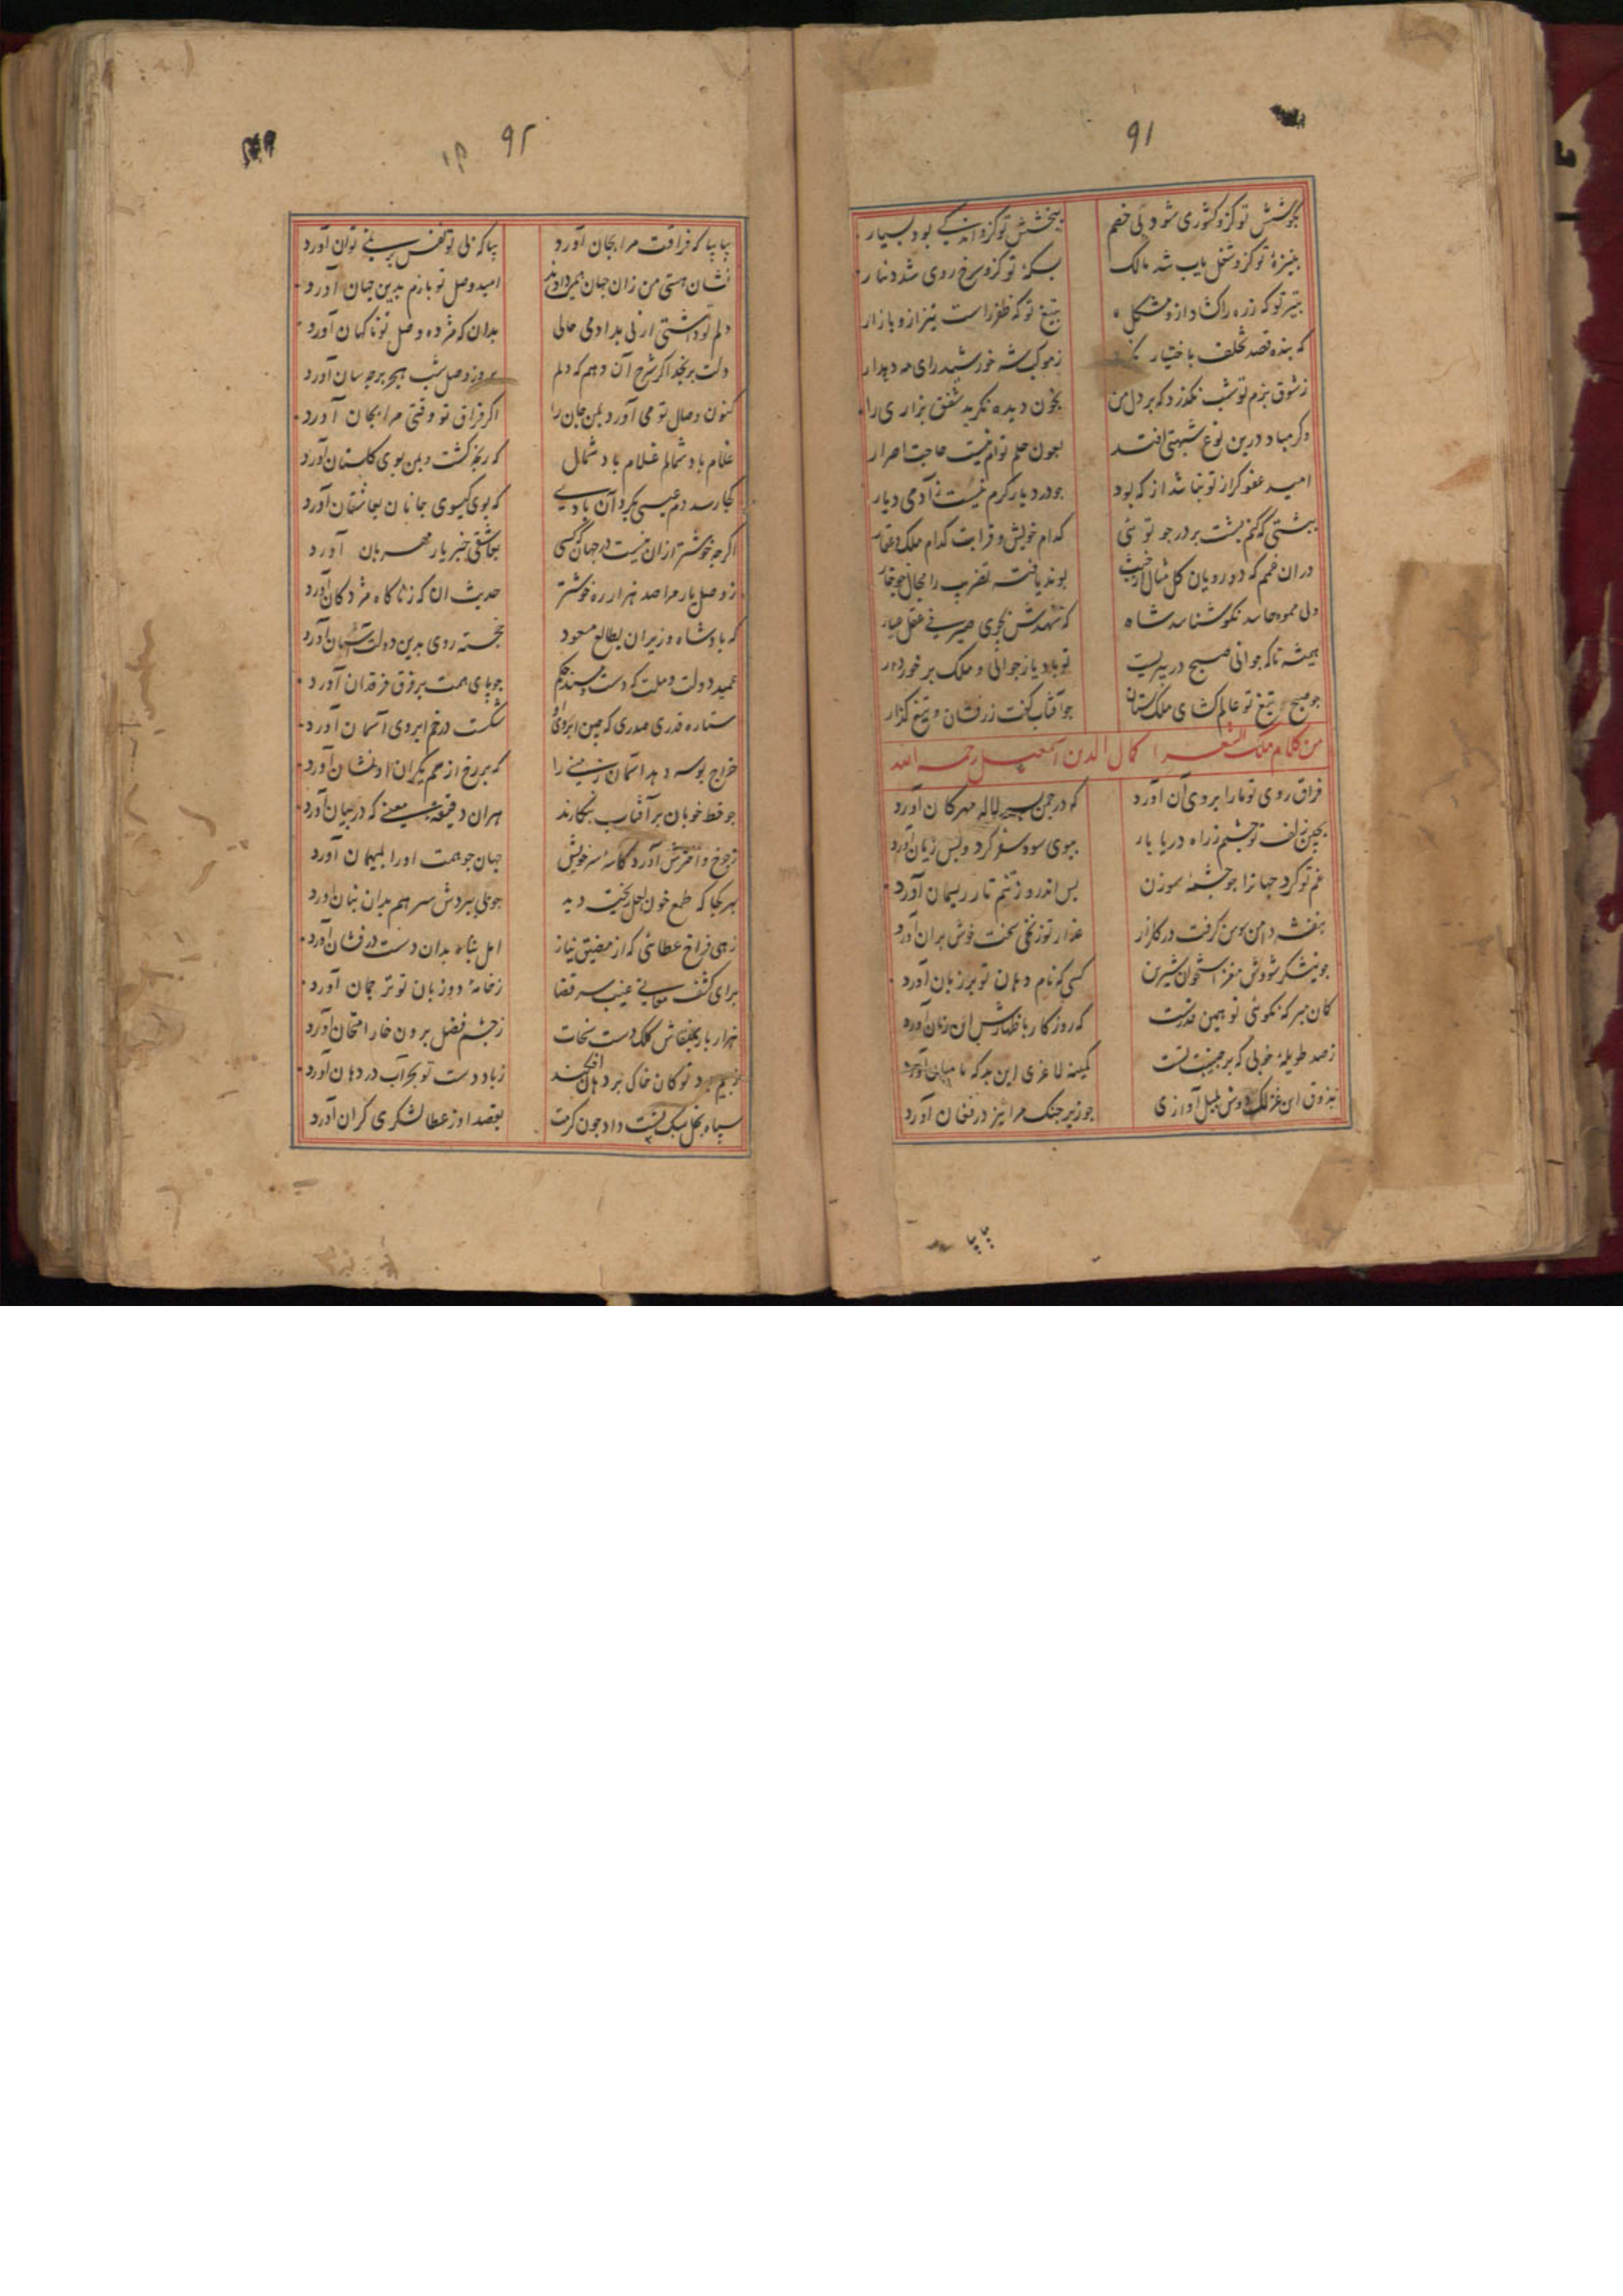 ۹۱
بکوشش تو کزو کشوری شود بی خصم
ببخشش تو کزو اندکی بود بسیار
بنیزهٔ تو کزو شغل یاب شد مالک
بسکهٔ تو کزو سرخ روی شد دینار
بتیر تو که زره را کشاد ازو مشکل
بتیغ تو که ظفر راست تیز ازو بازار
که بنده قصد تخلف باختیار نکرد
ز موکب شه خورشید رای مه دیدار
ز شوق بزم تو شب نکذرد که بر دل من
بخون دیده نکرید شفق بزاری زار
وکر مباد درین نوع شبهتی افتد
بعون حلم توام نیست حاجت اصرار
امید عفو کر از تو نباشد از که بود
جو در دیار کرم نیست ز آدمی دیار
کدام خویش و قرابت کدام ملک و عقار
دران خم که دو رویان کل مثال از خبث
بوند یافته تضریب را مجال جو خار
کی شناسد شاه
همیشه تا که جوانی صبح در پیریست
تو باد یاز جوانی و ملک برخوردار
جو صبح تیغ تو عالم کشای ملک ستان
جو آفتاب کفت زرفشان و تیغ کذار
من کلام ملک الشعرا کمال الدین اسمعیل رحمه الله
فراق روی تو ما را بروی آن آورد
که در جمن بسر لاله مهرکان آورد
بچین زلف تو جشمم ز راه دریا بار
ببوی سود سفر کرد و بس زیان آورد
غم تو کرد جهانرا جو جشمهٔ سوزن
بس اندرو ز تنم تار ریسمان آورد
بنفشه دامن سوسن کرفت در کلزار
عذار تو ز نکی سخت خوش بران آورد
جو نیشکر شودش مغز استخوان شیرین
کسی که نام دهان تو بر زبان آورد
کمان مبر که نکوئی تو همین قدرست
که روزکار باظهارش این زمان آورد
ز صد طویلهٔ خوبی که بر جبینت تست
کمینه لاغری این بد که تا میان آورد
بذوق این غزلک دوش بلبل آوازی
جو زیر جنک مرا نیز در فغان آورد
بیا بیا
۹۲
بیا بیا که فراقت مرا بجان آورد
بیا که بی تو نفس بر نمی توان آورد
نشان هستی من زان جهان همی دادند
امید وصل تو بازم بدین جهان آورد
دلم تو داشتی ار نی بدادمی حالی
بدان که مژده وصل تو ناکهان آورد
دلت برنجد اکر شرح آن دهم که دلم
بروز وصل شب هجر بر چه سان آورد
کنون وصال تو می آورد بمن جان را
اکر فراق تو وقتی مرا بجان آورد
غلام باد شمالم غلام باد شمال
که رنجه کشت و بمن بوی کلستان آورد
کجا رسد دم عیسی بکرد آن بادی
که بوی کیسوی جانان بعاشقان آورد
اکر جه خوشتر ازان نیست در جهان که کسی
بعاشقی خبر یار مهربان آورد
ز وصل یار مرا صد هزار ره خوشتر
حدیث آن که ز ناکاه مژدکان آورد
که بادشاه وزیران بطالع مسعود
خجسته روی بدین دولت آشیان آورد
عمید دولت و ملت که دست مسند حکم
جو پای همت بر فرق فرقدان آورد
ستاره قدری صدری که چین ابروی او
شکست در خم ابروی آسمان آورد
خراج بوسه دهد آسمان زمینی را
که بر رخ از سم یکران او نشان آورد
جو خط خوبان بر آفتاب بنکارند
هران دقیقهٔ معنی که در بیان آورد
ز جرخ و اخترش آورد کاسهٔ سر خویش
جهان جو همت او را بمیهمان آورد
بهر کجا که طمع خون بخل ریخته دید
زهی فراخ عطائی که از مضیق نیاز
امل پناه بدان دست درفشان آورد
برای کشف معانی غیب سر قضا
ز خامهٔ دو زبان تو ترجمان آورد
هزار بار بمنقاش کلک دست سخات
ز جشم فضل برون خار امتحان آورد
ز باد دست تو بحر آب در دهان آورد
سپاه بخل سبک پشت داد جون کرمت
بقصد او ز عطا لشکری کران آورد